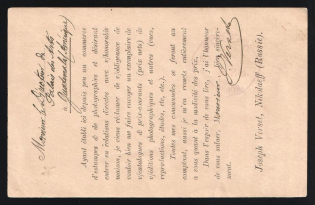 Monsieur le Directeur du
Palais des Arts
à
Ayant établi ici depuis peu un commerce
d'estampes & de photographies et désirant
entrer en relations directes avec v/honorable
maison, je viens réclamer de v/obligeance de
vouloir bien me faire envoyer un exemplaire de
v/catalogues & prix-courants (prix nets) de
v/éditions photographiques et autres (vues,
reproductions, études, etc., etc.).
Toutes mes commandes se feront au
comptant, aussi je m'en remets entièrement
à vous quant à la modicité des prix.
Dans l'espoir de vous lire, j'ai l'honneur
de vous saluer, Monsieur, bien sincère-
ment.
Joseph Verset, Nikolaeff (Russie).